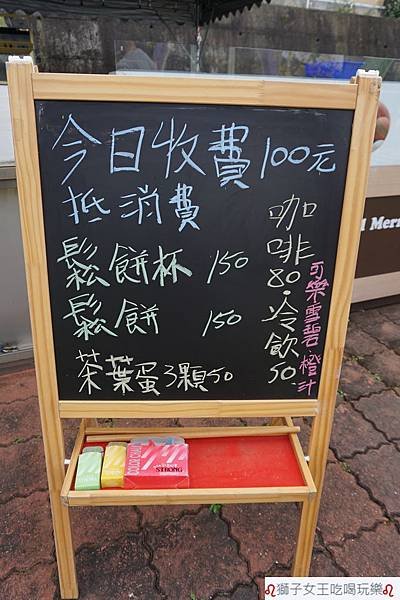 今日收費100元
抵消費
鬆餅杯 150
鬆餅 150
茶葉蛋3顆50
咖啡80.冷飲50.
可樂雪碧橙汁
STRONG
獅子女王吃喝玩樂